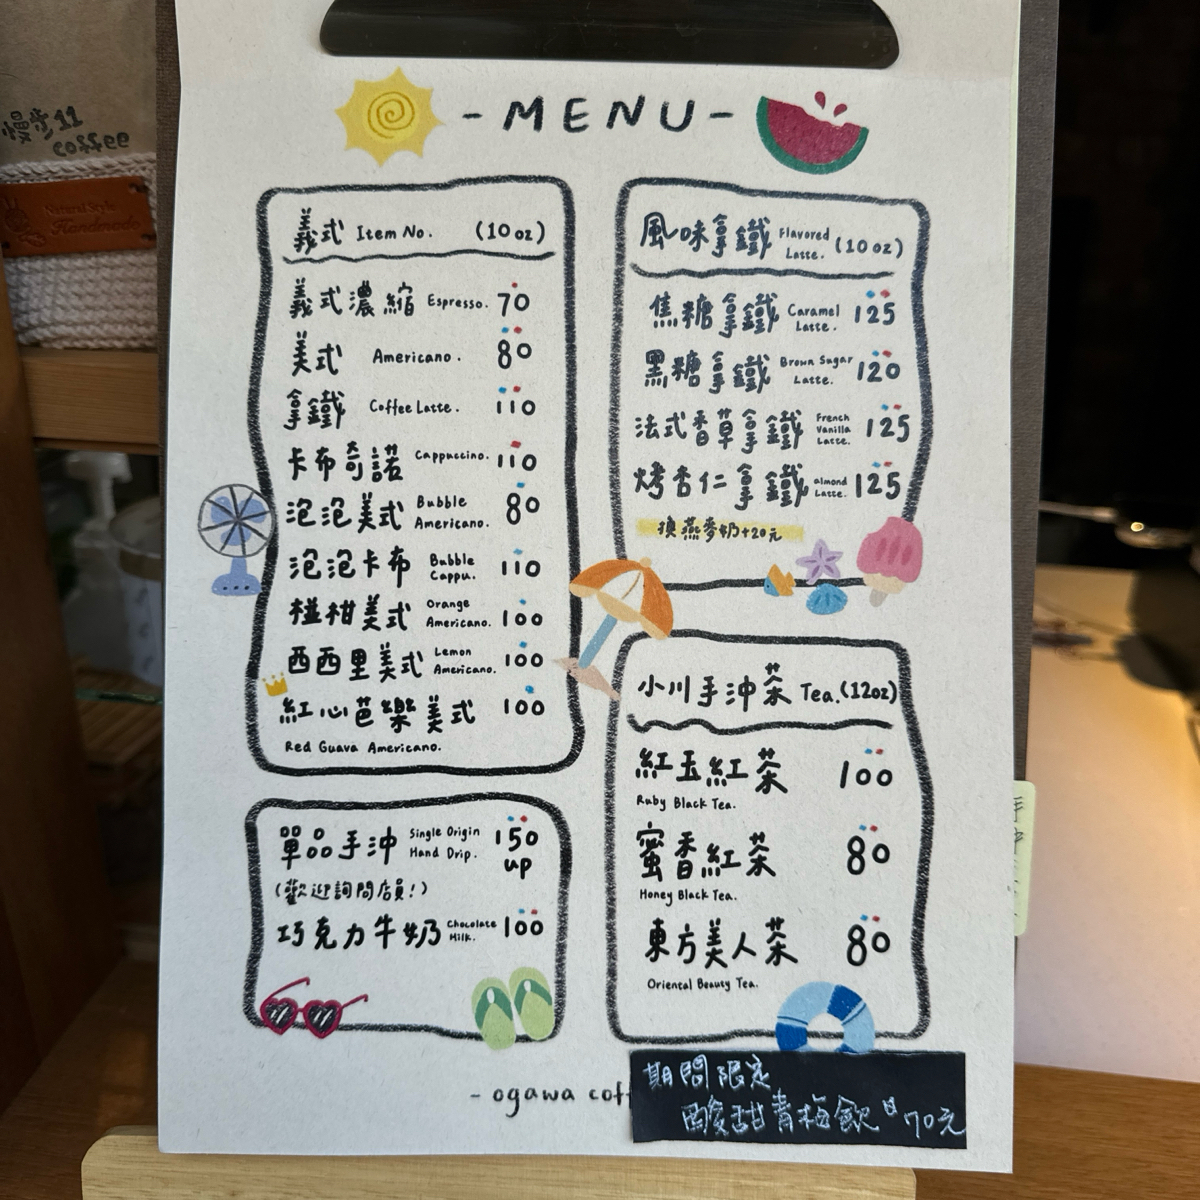 慢步11
coffee
Natural Style
Handmade
-MENU-
義式 Item No. (10 oz)
義式濃縮 Espresso. 70
美式 Americano. 80
拿鐵 Coffee Latte. 110
卡布奇諾 Cappuccino. 110
泡泡美式 Bubble Americano. 80
泡泡卡布 Bubble Cappu. 110
椪柑美式 Orange Americano. 100
西西里美式 Lemon Americano. 100
紅心芭樂美式 100
Red Guava Americano.
單品手沖 Single Origin Hand Drip. 150 up
(歡迎詢問店員!)
巧克力牛奶 Chocolate Milk. 100
風味拿鐵 Flavored Latte. (10 oz)
焦糖拿鐵 Caramel Latte. 125
黑糖拿鐵 Brown Sugar Latte. 120
法式香草拿鐵 French Vanilla Latte. 125
烤杏仁拿鐵 almond Latte. 125
換燕麥奶+20元
小川手沖茶 Tea.(12oz)
紅玉紅茶 100
Ruby Black Tea.
蜜香紅茶 80
Honey Black Tea.
東方美人茶 80
Oriental Beauty Tea.
- ogawa cof
期間限定
酸甜青梅飲 70元